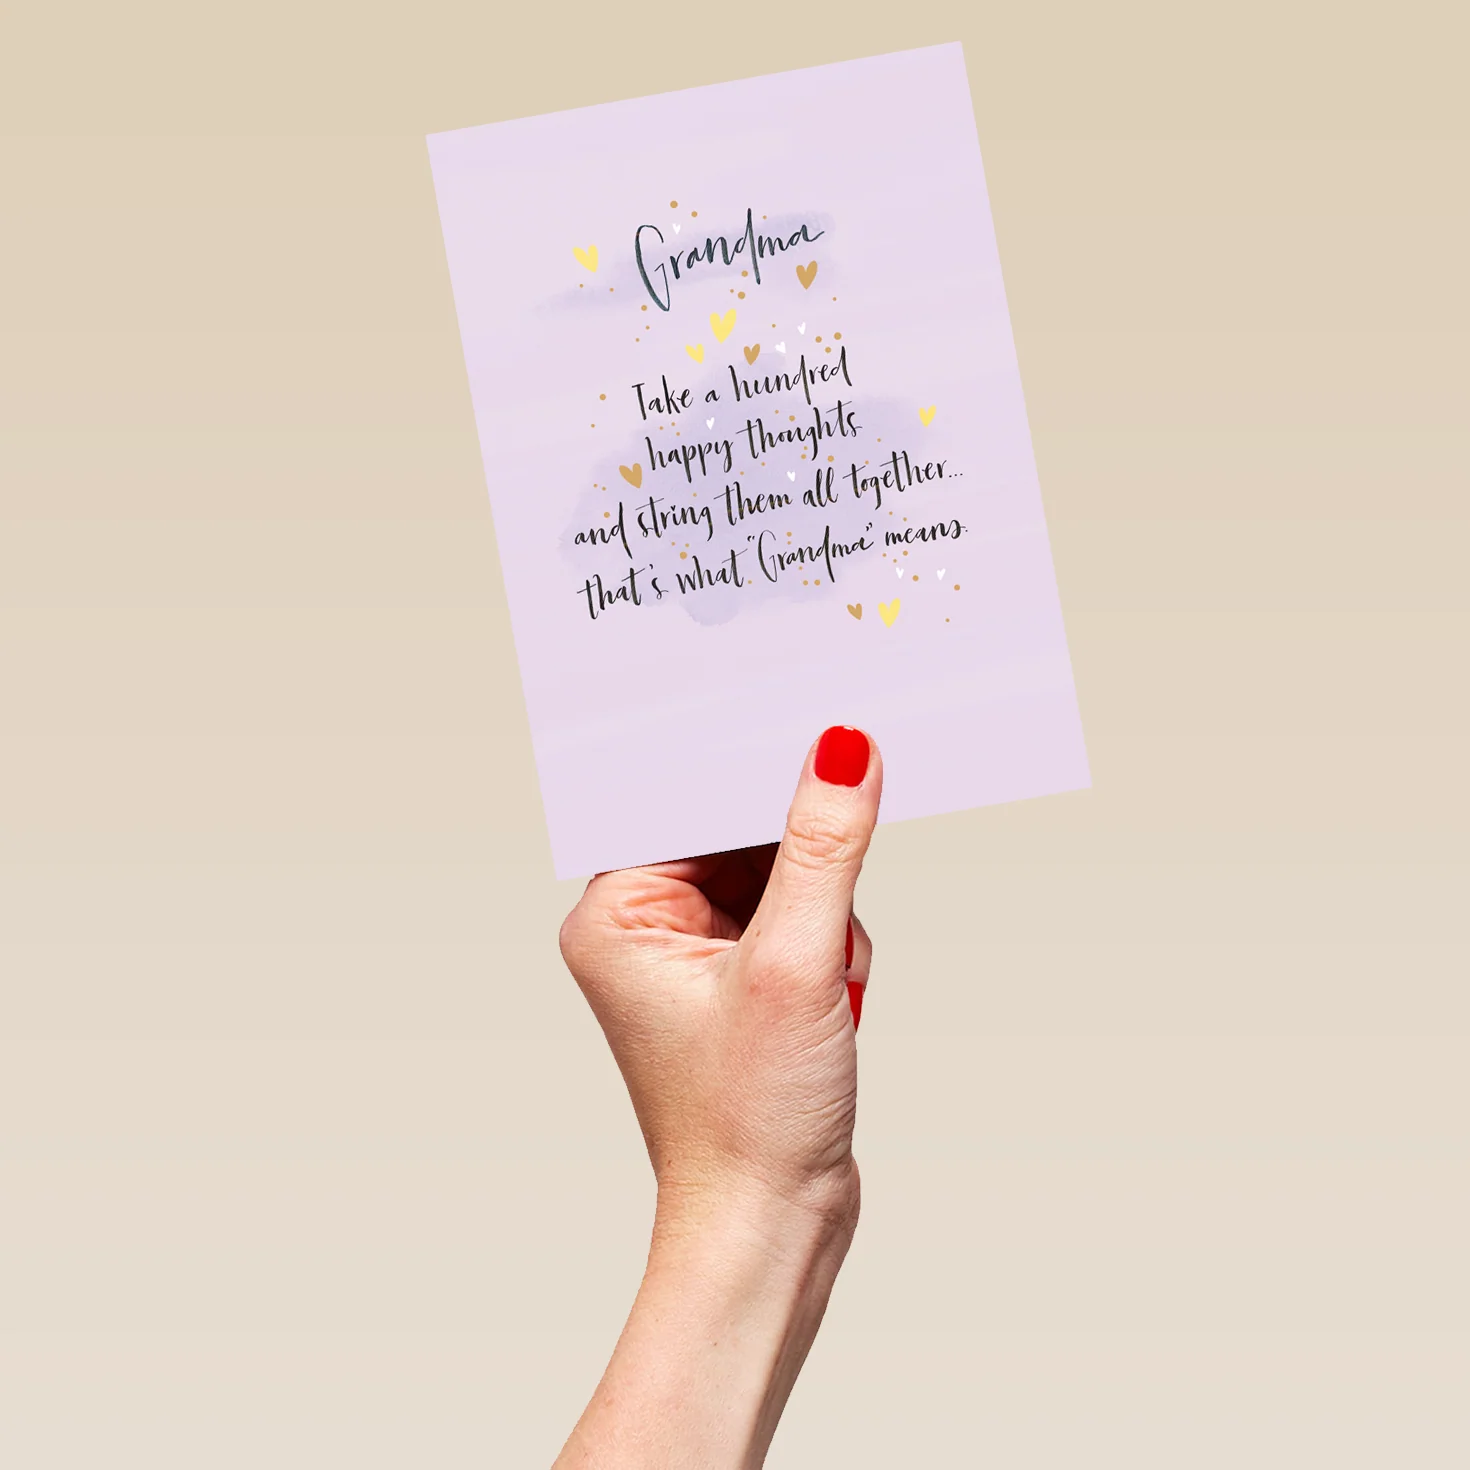 Grandma
Take a hundred
happy thoughts
and string them all together...
that's what "Grandma" means.